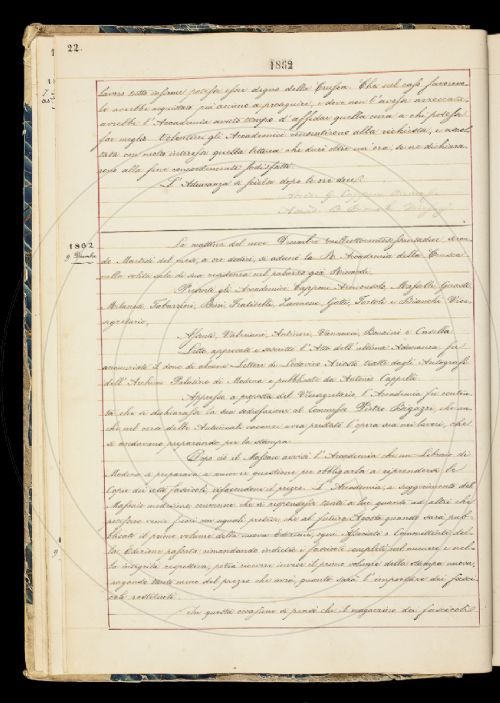 22.
1862
lavoro tutto insieme potesse esser degno della Crusca. Che nel caso favorevole
lo avrebbe acquistato più animo a proseguire, e dove non l'avesse avvocata,
avrebbe l'Accademia avuto tempo d'affidar quella cura a chi potesse
far meglio. Volentieri gli Accademici consentirono alla richiesta, e ascoltata
con molto interesse quella lettura che durò oltre un'ora, se ne dichiararono
alla fine concordemente sodisfatti.
L'Adunanza si sciolse dopo le ore due.
1862
9 Dicembre
La mattina del nove Dicembre milleottocentosessantadue, secondo
Martedì del mese, a ore dodici, si adunò la R. Accademia della Crusca
nella solita sala di sua residenza nel palazzo già Riccardi.
Presenti gli Accademici Capponi Arciconsolo, Mafalli, Guasti
Milanesi, Tabarrini, Bini, Fraticelli, Zannoni, Gotti, Tortoli e Bianchi Vicesegretario,
Assenti, Valeriani, Antinori, Vannucci, Barsini e Casella.
Letto approvato e soscritto l'Atto dell'ultima Adunanza fu
annunziato il dono di alcune Lettere di Lodovico Ariosto tratte dagli Autografi
dell'Archivio Palatino di Modena e pubblicate da Antonio Cappelli
Appresso a proposta del Vicesegretario l'Accademia fu contenta
che si dichiarasse la sua sodisfazione al Commesso Pietro Bigazzi che anche
nel corso delle Autunnali vacanze avea prestato l'opera sua nei lavori, che
si andavano preparando per la stampa.
Dopo ciò il Massaio avvisò l'Accademia che un Libraio di
Modena si preparava a muovere questione per obbligarla a riprendere le
Copie dei sette fascicoli rifacendone il prezzo. L'Accademia, a suggerimento del
Massaio medesimo convenne che si rispondesse tanto a lui quanto ad altri che
potessero venir fuori con eguali pretese, che al futuro Agosto quando sarà pubblicato
il primo volume della nuova Edizione, ogni Associato o Committente della
Edizione passata rimandando indietro i fascicoli completi nel numero e nella
integrità rispettiva, potrà ricevere invece il primo volume della stampa nuova,
pagando tanto meno del prezzo che avrà, quanto sarà l'importare dei fascicoli
restituiti.
In questa occasione si pensò che il magazzino dei fascicoli